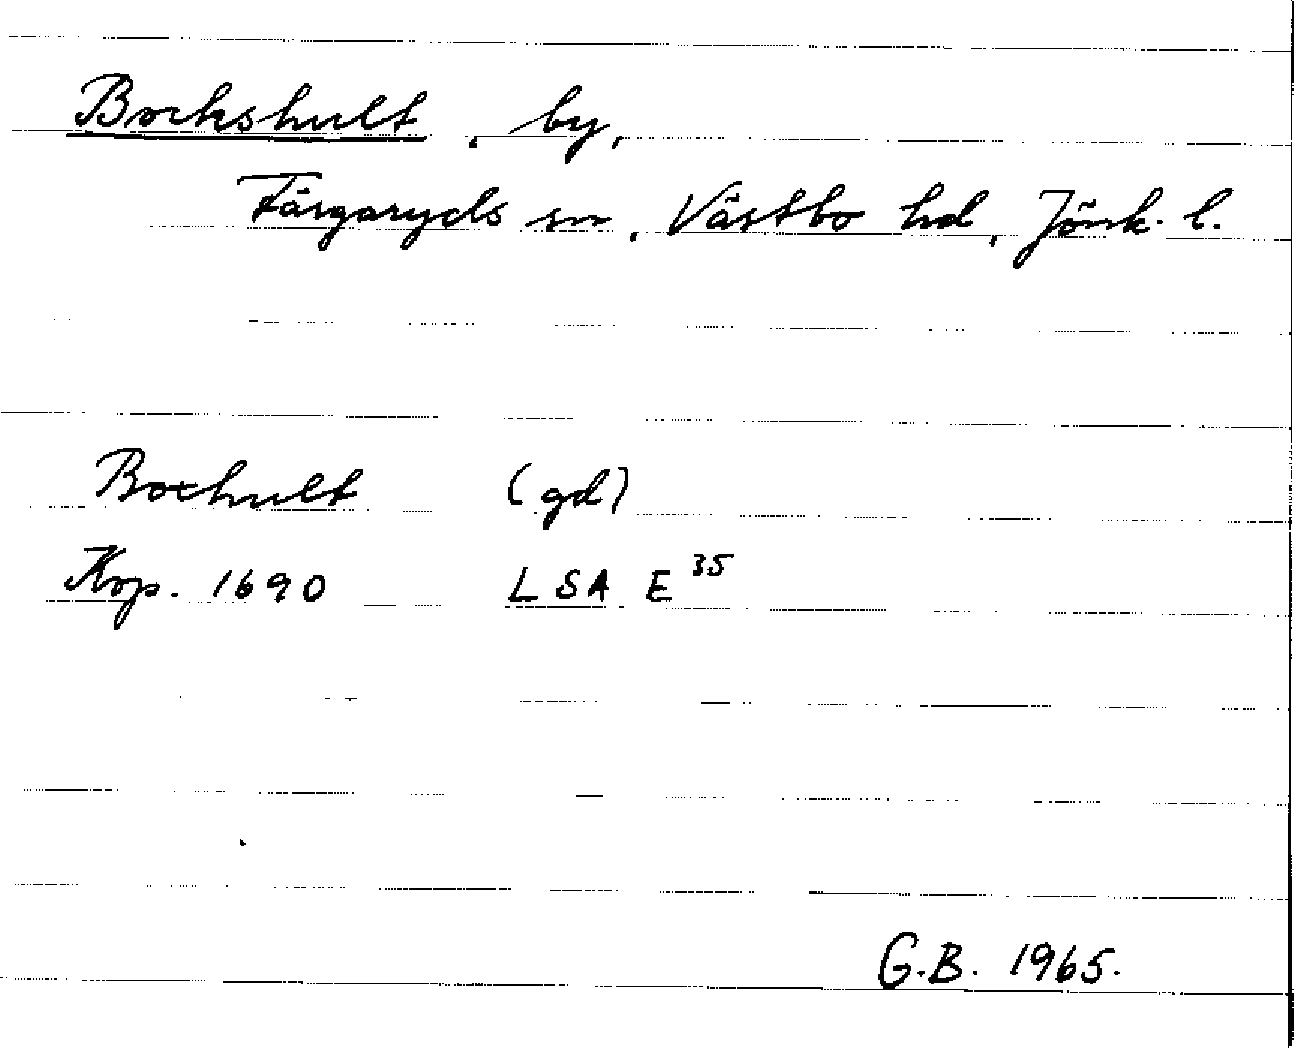 Bockshult, by,
Färgaryds sn, Västbo hd, Jönk. l.
Boxhult (gd)
Kop. 1690 LSA E 35
G.B. 1965.